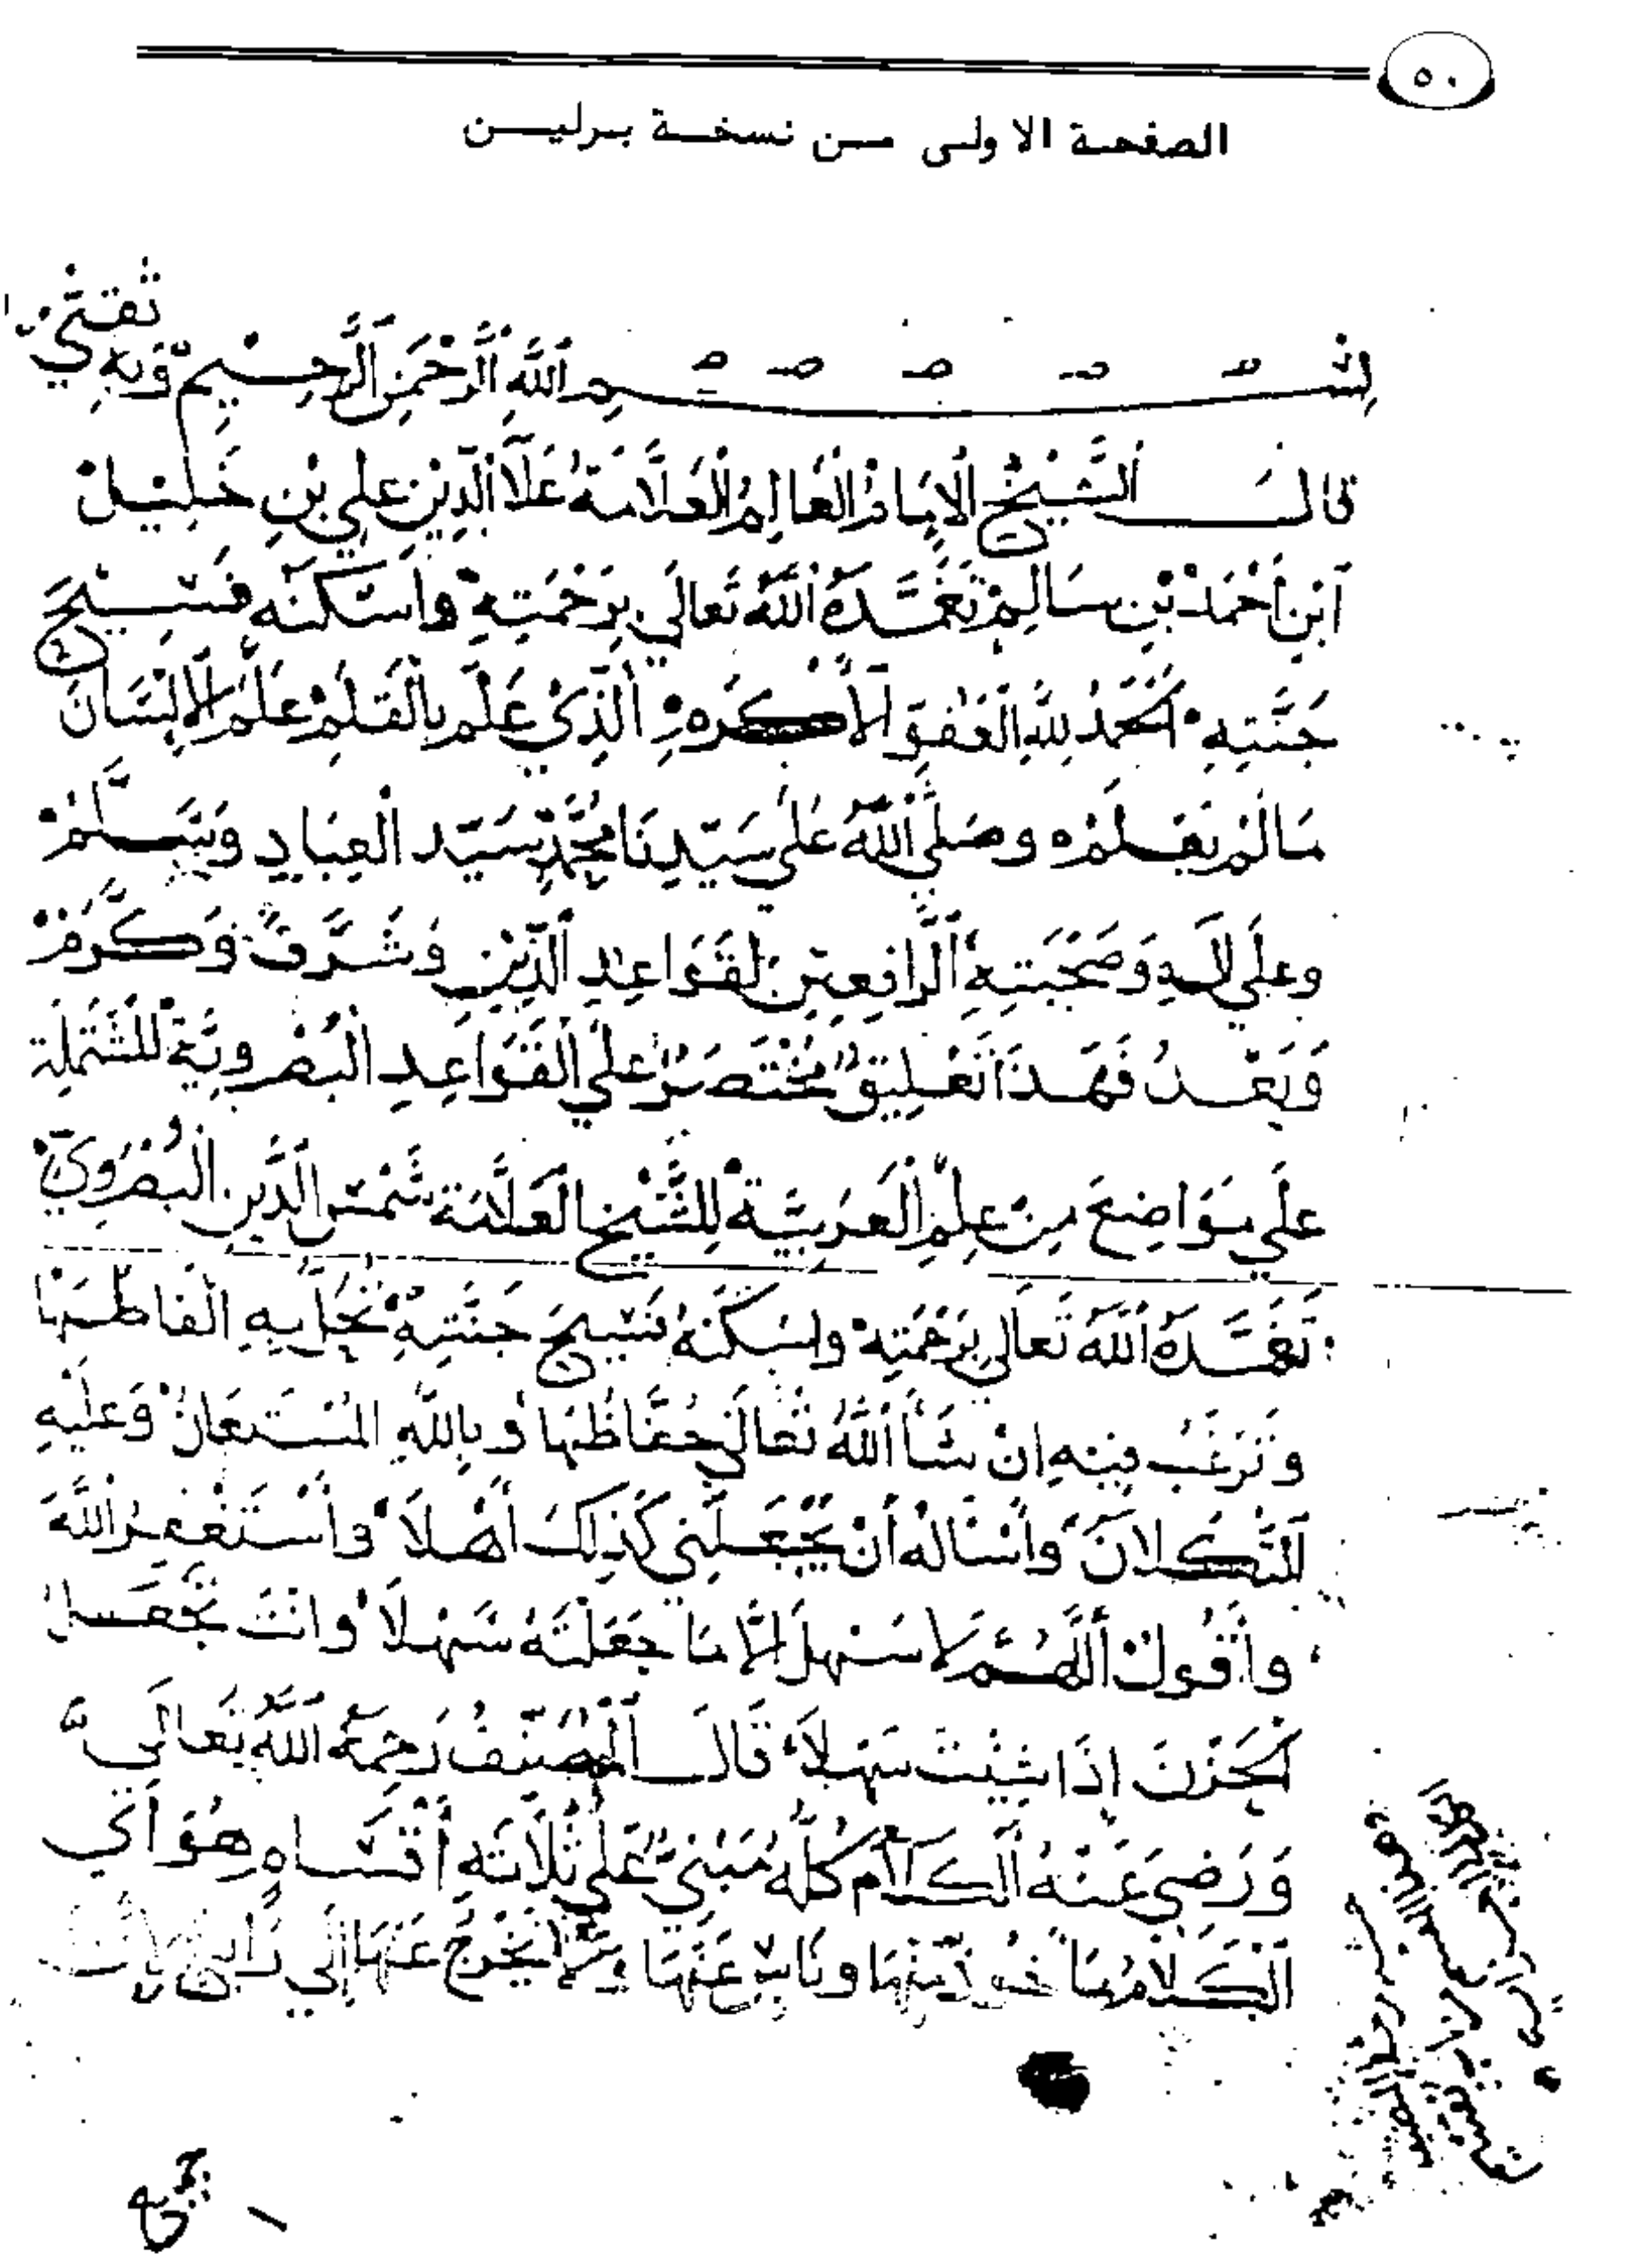 ٥٠
الصفحة الاولى من نسخة برلين
بِسْمِ اللَّهِ الرَّحْمَنِ الرَّحِيمِ وَبِهِ ثقتي
قَالَ الشَّيْخُ الْإِمَامُ الْعَالِمُ الْعَلَّامَةُ عَلَا الدِّينِ عَلِي بْنِ خَلِيلْ
ابْنِ أَحْمَدْ بْنِ سَالِمْ تَغَمَّدَهُ اللَّهُ تَعَالَي بِرَحْمَتِهِ وَاسْكَنَهُ فَسِيحَ
جَنَّتِهِ الْحَمْدُ لِلَّهِ الْعَفُوِّ الْأَكْرَمِ الَّذِي عَلَّمَ بِالْقَلَمِ عَلَّمَ الْإِنْسَانَ
مَا لَمْ يَعْلَمْ وَصَلَّى اللَّهُ عَلَي سَيِّدِنَا مُحَمَّدٍ سَيِّدِ الْعِبَادِ وَسَلَّمْ
وَعَلَي آلِهِ وَصَحْبَتِهِ الرَّافِعِينَ لِقَوَاعِدِ الدِّينِ وَشَرَّفَ وَكَرَّمْ
وَبَعْدُ فَهَذَا تَعْلِيقٌ مُخْتَصَرٌ عَلَي الْقَوَاعِدِ الْبُصْرَوِيَّةْ الْمُشْتَمِلَة
عَلَي مَوَاضِعَ مِنْ عِلْمِ الْعَرَبِيَّةْ لِلشَّيْخِ الْعَلَّامَة شَمْسِ الدِّينِ الْبُصْرَوِيّ
تَغَمَّدَهُ اللَّهَ تَعَالَي بِرَحْمَتِهِ وَاسْكَنَهُ فَسِيحَ جَنَّتِهِ نَحُلُّ بِهِ الْفَاظَهَا
وَنَرْغَبُ فِيهِ اِنْ شَاْ اللَّهُ تَعَالَي حُفَّاظُهَا وَبِاللَّهِ الْمُسْتَعَانُ وَعَلَيْهِ
التُّكْلَانَ وَأَسْأَلُهُ أَنْ يَجْعَلَنِي كَذَلِكَ أَهْلَا وَأَسْتَغْفِرُ اللَّهَ
وَأَقُولُ أَللَّهُمَّ لا سَهْلَ إِلَّا مَا جَعَلْتَهُ سَهْلَا وَأَنْتَ تَجْعَلُ
الْحَزْنَ إِذَا شِئْتَ سَهْلَا قَالَ الْمُصَنِّفُ رَحِمَهُ اللَّهُ تَعَالَي
وَرَضِيَ عَنْهُ الْكَلَامُ كُلُّهُ مَبْنِيٌّ عَلَي ثَلَاثَةِ أَقْسَامٍ هُوَ أَيْ
الْكَلَامُ مَأْخُوذٌ مِنْهَا وَ عَنْهَا وَلَا يَخْرُجُ عَنْهَا إِلَي رَابِعٍ